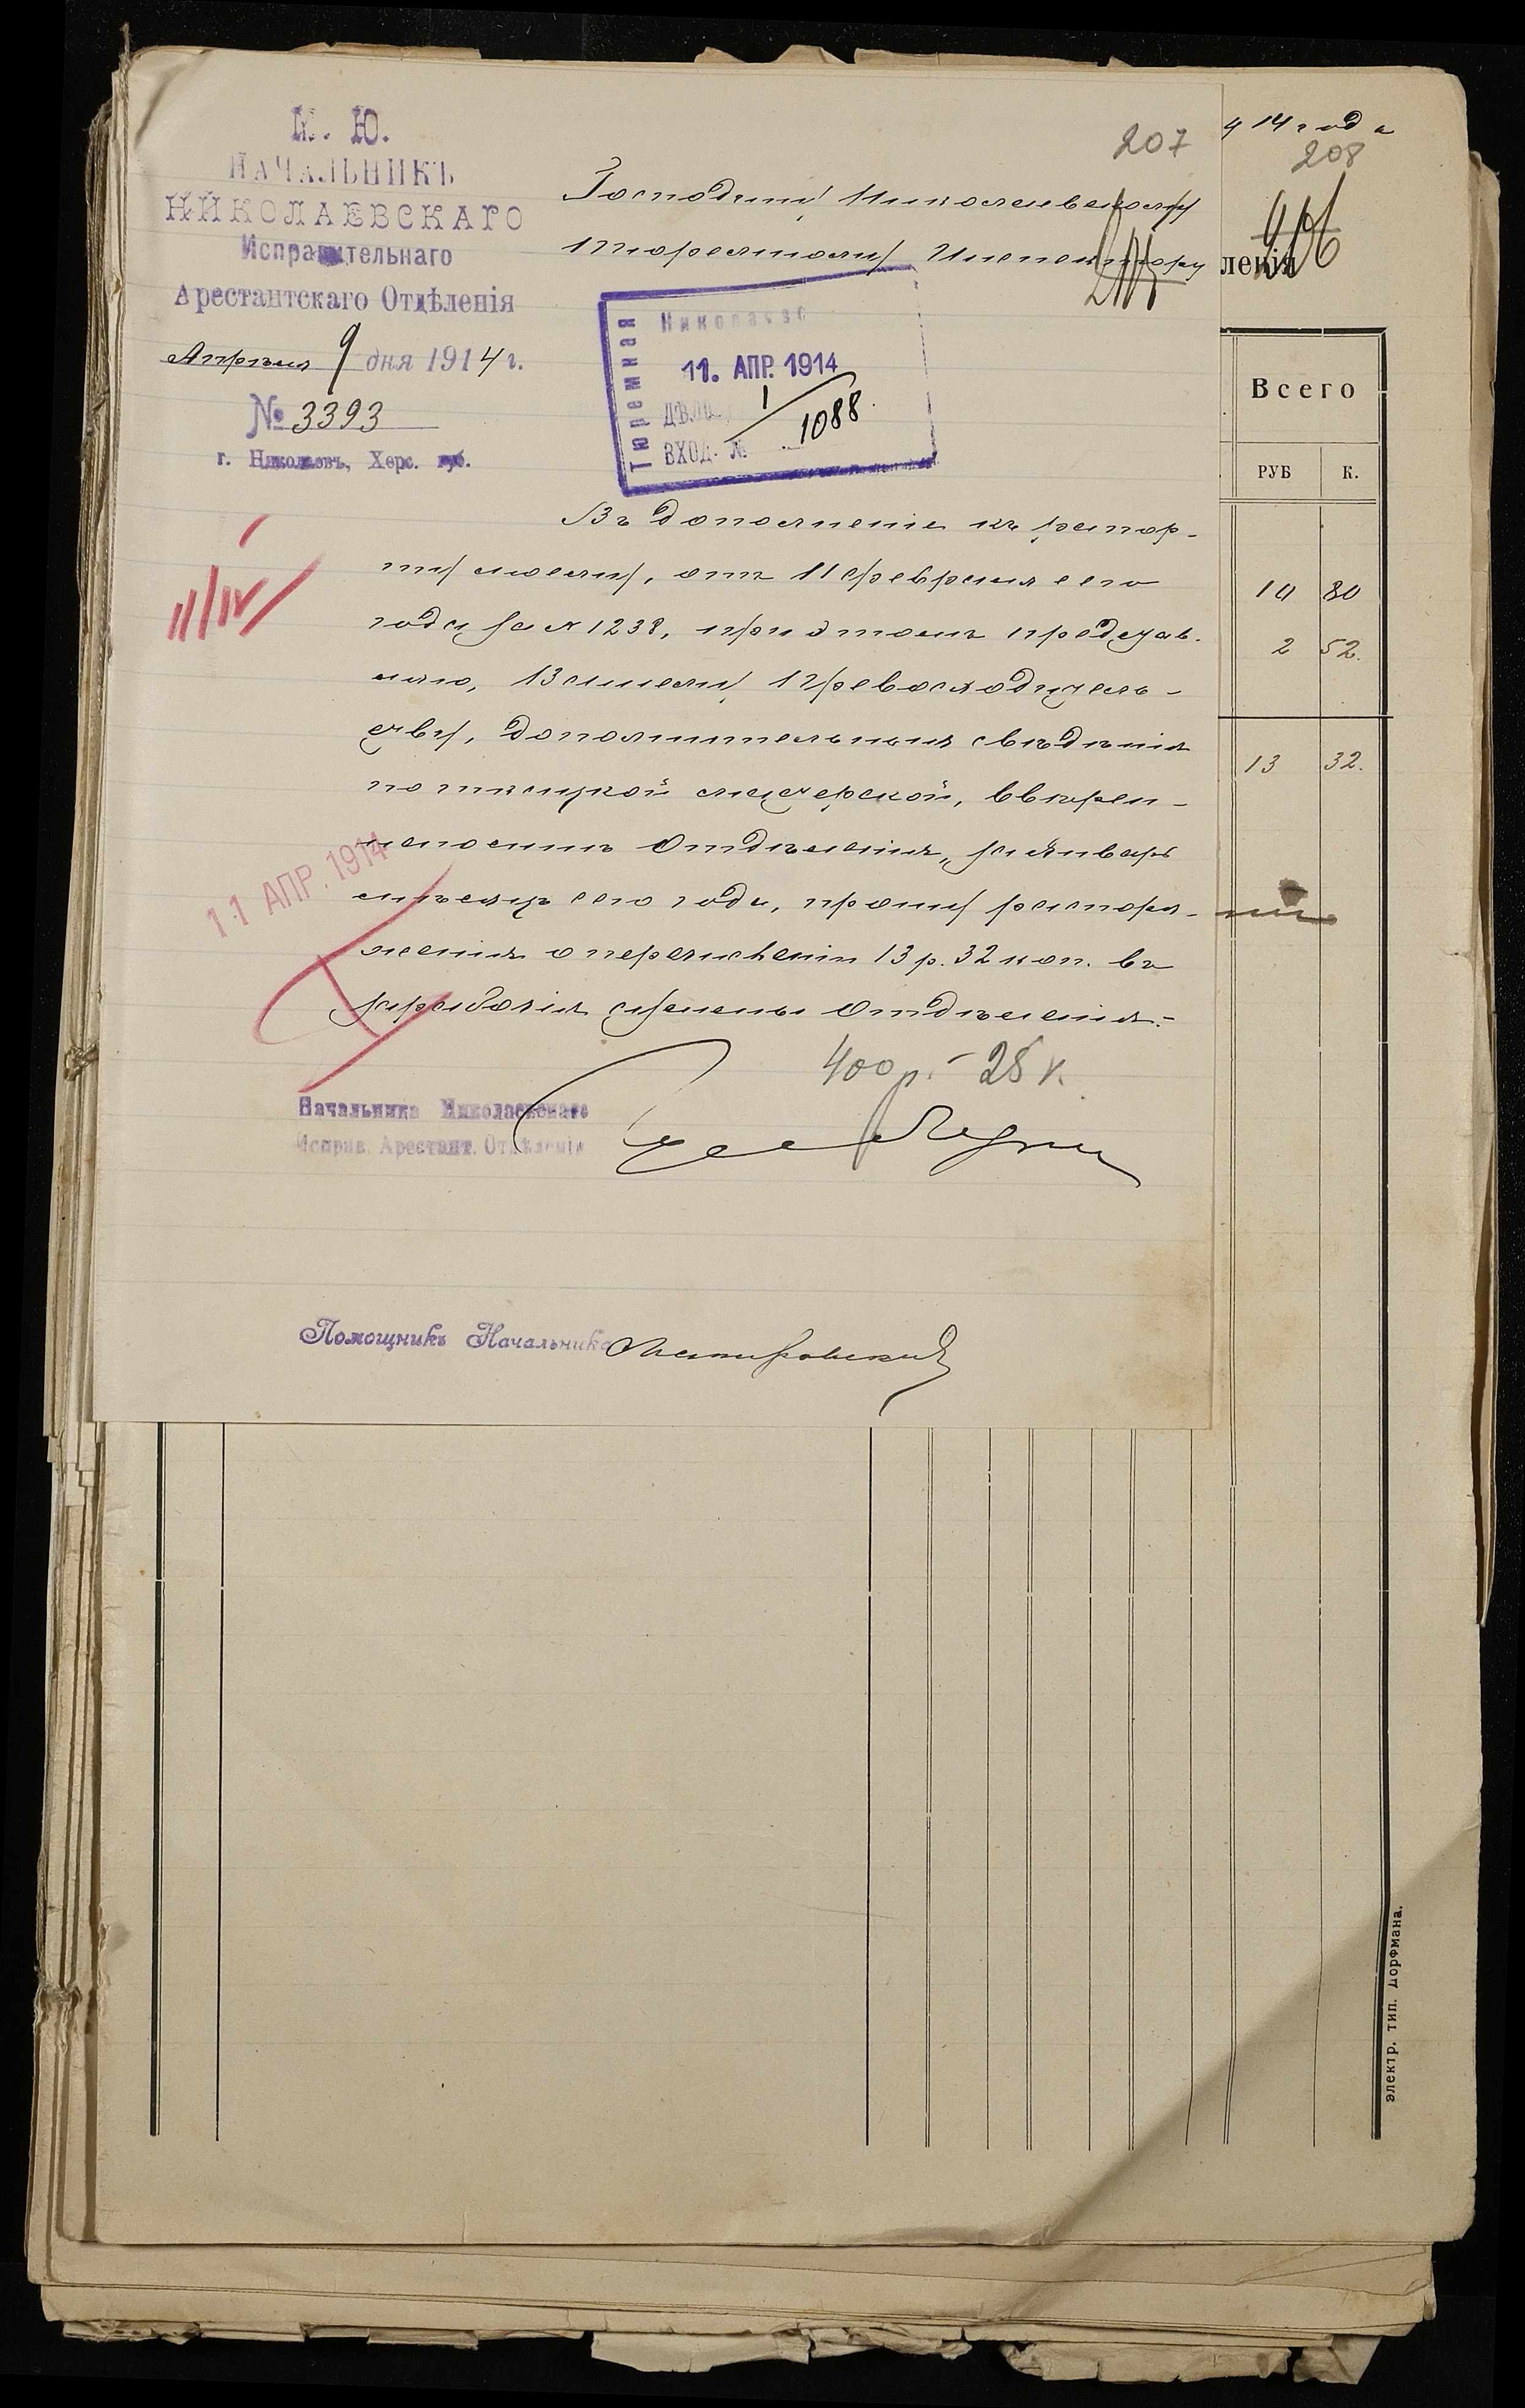 М. Ю.
НАЧАЛЬНИКЪ
НИКОЛАЕВСКАГО
Исправительнаго
Арестантскаго Отдѣленія
Апрѣля 9 дня 1914 г.
№ 3393
г. Николаевъ, Херс. губ.
207
Господину Николаевскому
Тюремному Инспектору
Тюремная
Николаев
11. АПР. 1914
ДѢЛО 1
ВХОД. № 1088.
Въ дополненіе къ рапор-
ту моему, отъ 11 февраля сего
года за № 1238, при этомъ представ-
ляю, Вашему Превосходитель-
ству, дополнительныя свѣдѣнія
по ткацкой мастерской, ввѣрен-
наго мнѣ Отдѣленія, за Январь
мѣсяцъ сего года, прошу распоря-
женія о перечисленіи 13 р. 32 коп. въ
заработныя суммы Отдѣленія.-
11 АПР. 1914
11/IV
400 р. - 25 к.
Начальника Николаевскаго
Исправ. Арестант. Отдѣленія
Помощникъ Начальника
914 года
208
206
ленія
Всего
РУБ К.
10 80
2 52.
13 32.
электр. тип. Дорфмана.